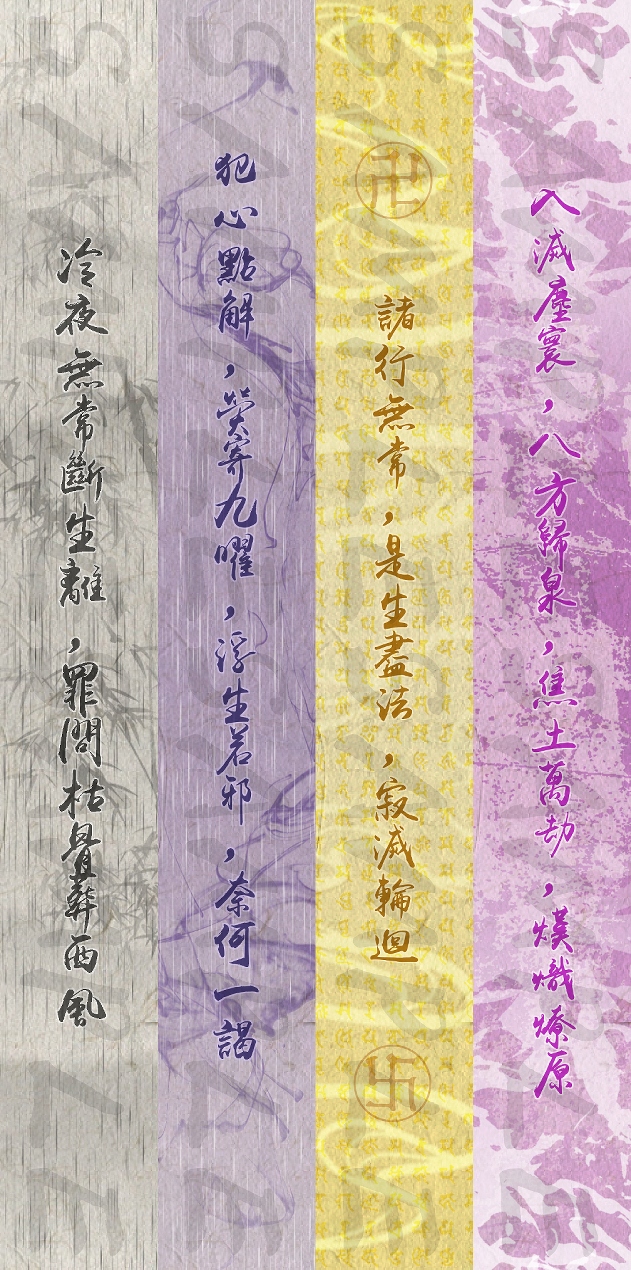 入滅塵寰，八方歸泉，焦土萬劫，熯熾燎原
卍
諸行無常，是生盡法，寂滅輪迴
卐
犯心點解，熒寄九曜，浮生若邪，奈何一謁
冷夜無常斷生離，罪問枯疊葬西風